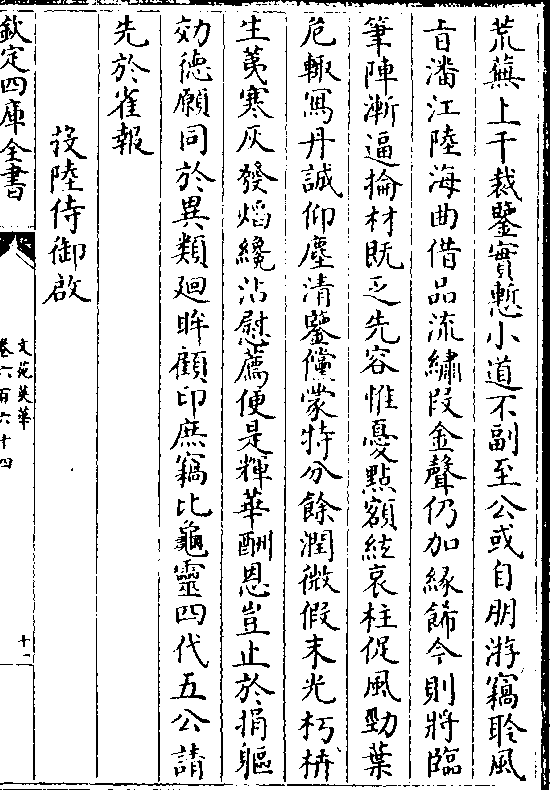 荒蕪上干裁鑒實慙小道不副至公或自朋游竊聆風
㫖潘江陸海曲借品流繡段金聲仍加縁飾今則將臨
筆陣漸逼掄材既乏先容惟憂㸃額絃哀柱促風勁葉
危輙冩丹誠仰塵清鑒儻蒙特分餘潤微假末光朽枿
生荑寒灰發熖纔沾慰薦便是輝華酬恩豈止於捐軀
効徳願同於異類廻眸顧印庶竊比龜靈四代五公請
先於雀報
投陸侍御啟
欽定四庫全書
文苑英華
卷六百六十四
十二